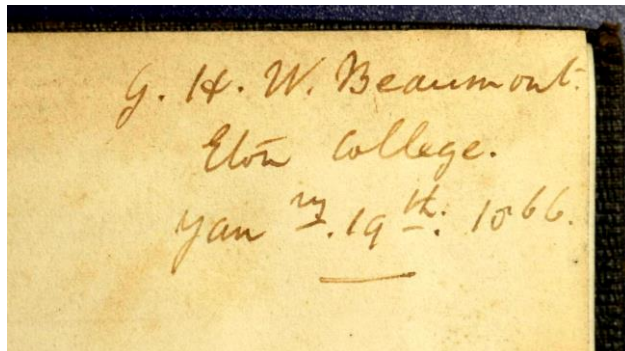 G. H. W. Beaumont.
Eton College.
Jan ry. 19th. 1866.